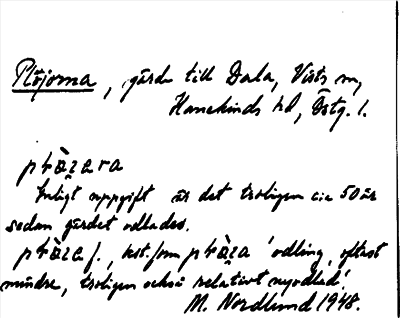 Plöjorna, gärde till Dala, Vists sn,
Hanekinds hd, Östg. l.
plò̤zara
Enligt uppgift är det troligen cia 50 år
sedan gärdet odlades.
plò̤za f., best. form plò̤za 'odling, oftast
mindre, troligen också relativt nyodlad'.
M. Nordlund 1948.